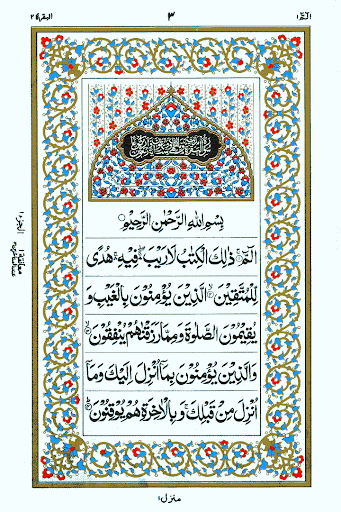 الٓمّٓ ١
٣
البقرة ٢
بِسْمِ اللّٰهِ الرَّحْمٰنِ الرَّحِيْمِ
الٓمّٓ ۚ ذٰلِكَ الْكِتٰبُ لَا رَيْبَ ۛ فِيْهِ ۛ هُدًى
لِّلْمُتَّقِيْنَ ۙ الَّذِيْنَ يُؤْمِنُوْنَ بِالْغَيْبِ وَ
يُقِيْمُوْنَ الصَّلٰوةَ وَمِمَّا رَزَقْنٰهُمْ يُنْفِقُوْنَ ۙ
وَالَّذِيْنَ يُؤْمِنُوْنَ بِمَآ اُنْزِلَ اِلَيْكَ وَمَآ
اُنْزِلَ مِنْ قَبْلِكَ ۚ وَبِالْاٰخِرَةِ هُمْ يُوْقِنُوْنَ ؕ
الجزء ١
معانقة ١
منزل ١